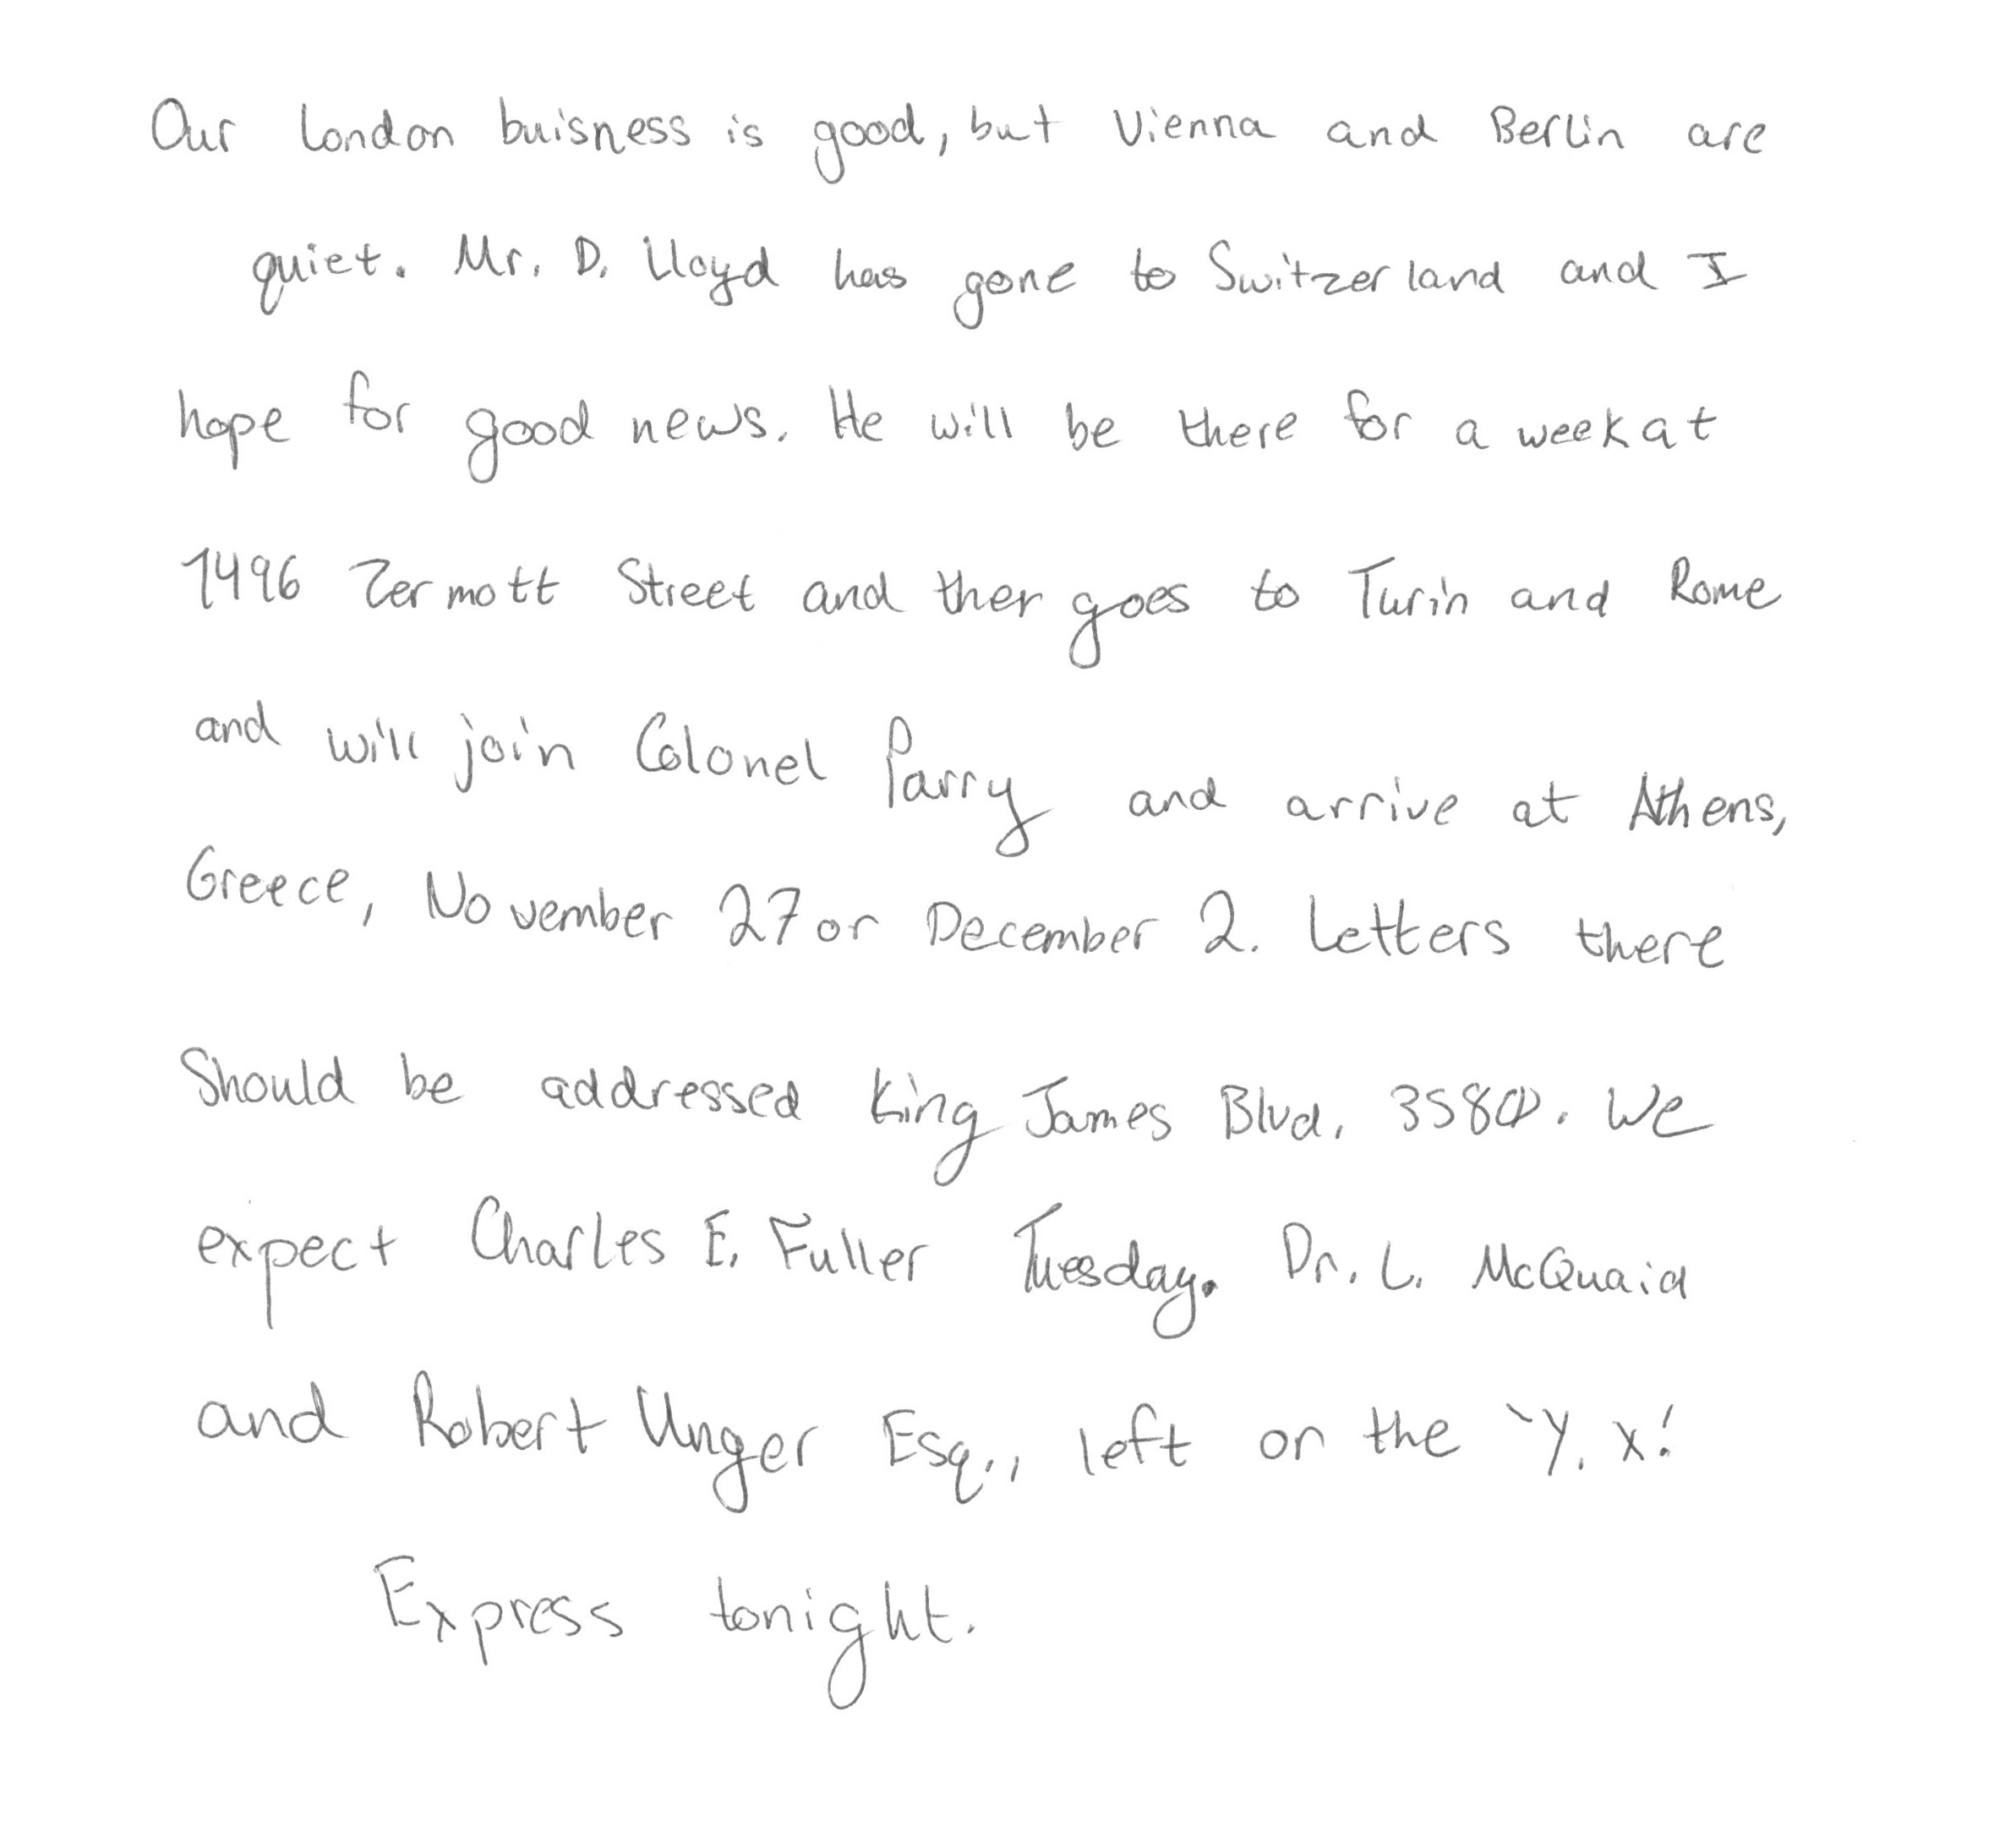 Our London buisness is good, but Vienna and Berlin are
quiet. Mr. D. Lloyd has gone to Switzerland and I
hope for good news. He will be there for a week at
1496 Zermott Street and ther goes to Turin and Rome
and will join Colonel Parry and arrive at Athens,
Greece, November 27 or December 2. Letters there
Should be addressed King James Blvd. 3580. We
expect Charles E. Fuller Tuesday. Dr. L. McQuaid
and Robert Unger Esq., left on the `Y. X!
Express tonight.